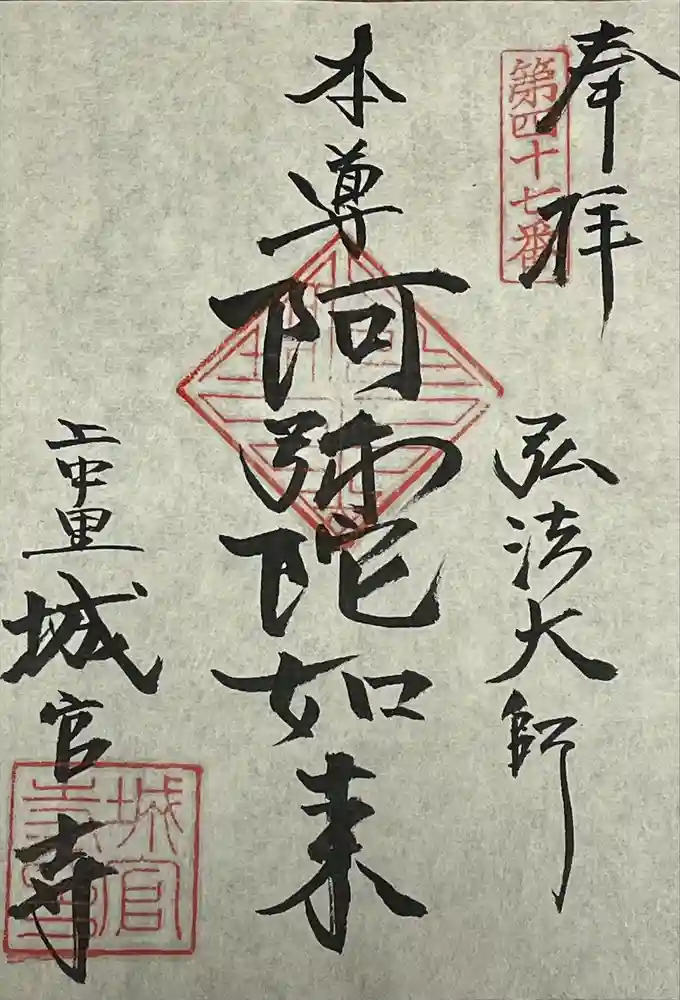 奉拝
第四十七番
弘法大師
本尊阿弥陀如来
上中里城官寺
城官寺